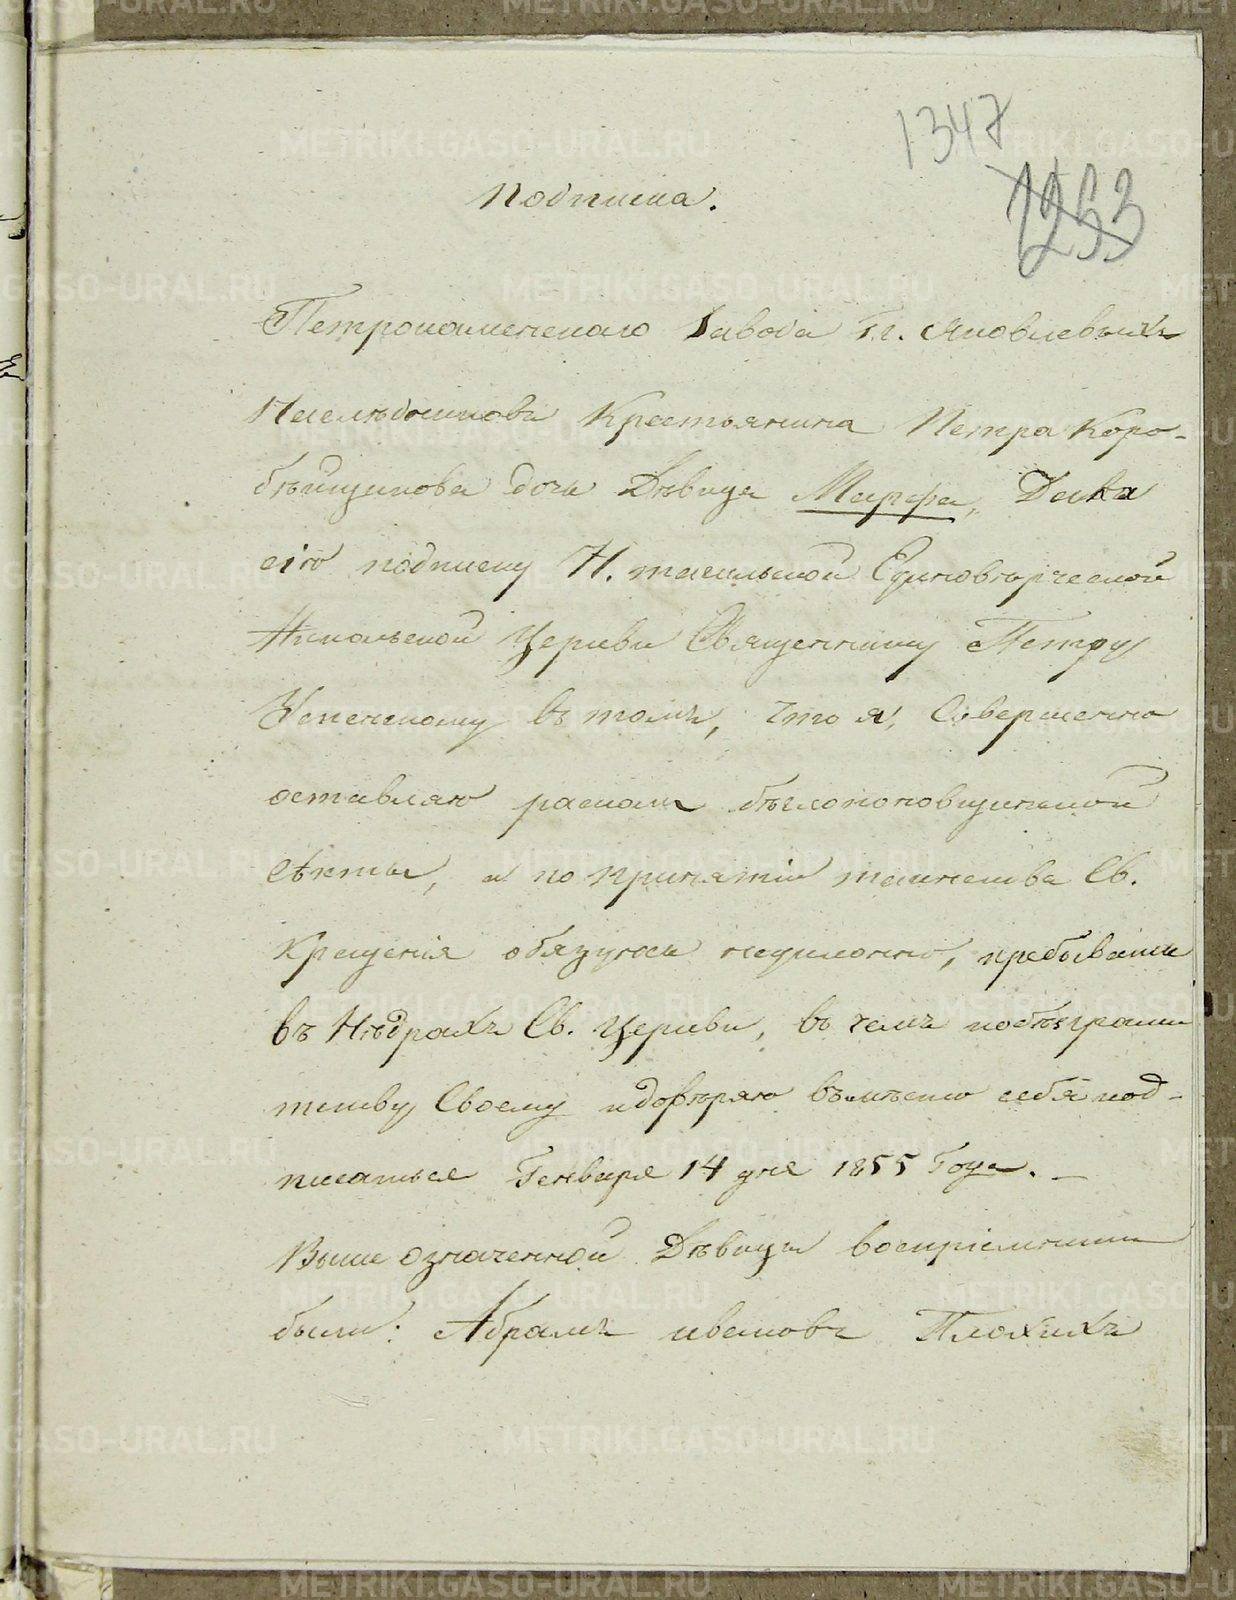 1347
1253
Подписка.
Петрокаменскаго Завода Гг. Яковлевыхъ
Наслѣдниковъ Крестьянина Петра Коро-
бѣйщикова дочь Дѣвица Марфа, Дала
сію подписку Н. тагильской Единовѣрческой
Никольской Церкви Священнику Петру
Успенскому въ томъ, что я, Совершенно
оставляю расколъ бѣглопоповщинской
Сѣкты, и по принятіи таинства Св.
Крещенія обязуюсь неуклонно, пребывать
въ Нѣдрахъ Св. Церкви, въ чемъ по безграмо
тству Своему и довѣряю вмѣсто себя под-
писаться Генваря 14 дня 1855 Года.
Выше означенной Дѣвицы воспріемники
были: Абрамъ ивановъ Плохихъ
METRIKI.GASO-URAL.RU